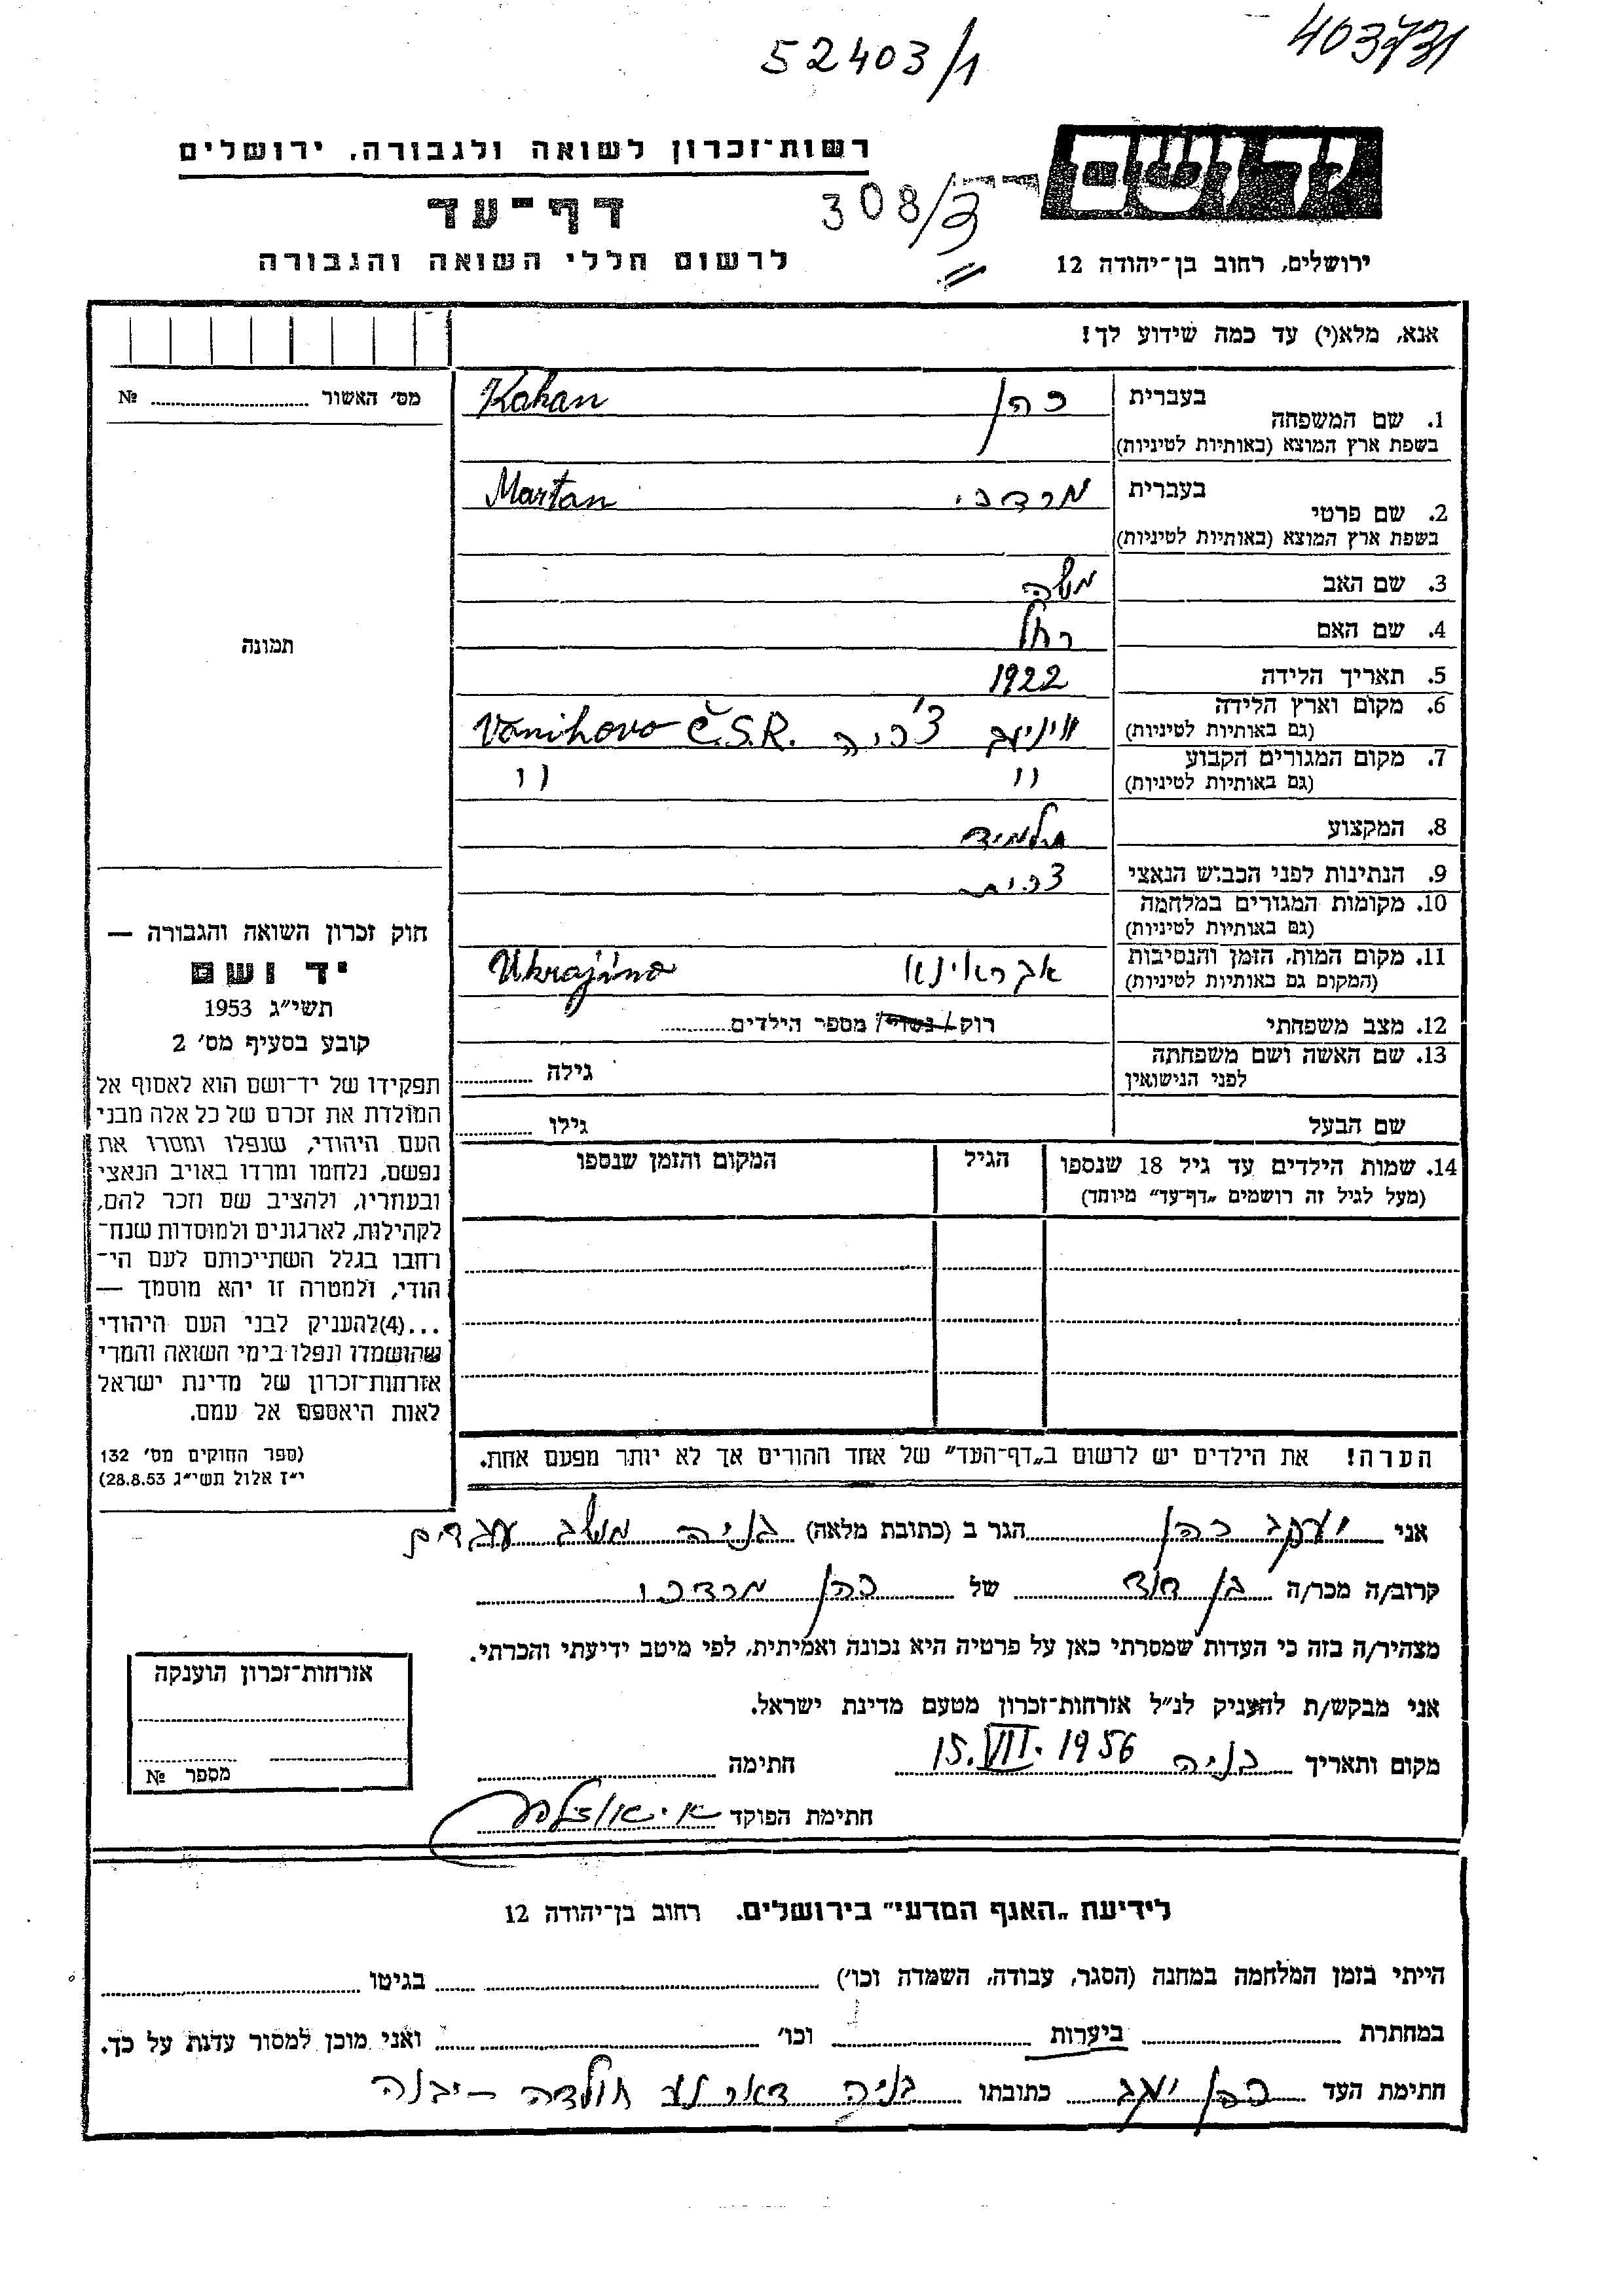 52403/1
403731
רשות־זכרון לשואה ולגבורה, ירושלים
דף־עד
308/3
יד ושם
לרשום חללי השואה והגבורה
ירושלים, רחוב בן־יהודה 12
אנא, מלא(י) עד כמה שידוע לך!
מס׳ האשור ........ №
1. שם המשפחה
בעברית כהן Kahan
בשפת ארץ המוצא (באותיות לטיניות)
2. שם פרטי
בעברית מרדכי Martan
בשפת ארץ המוצא (באותיות לטיניות)
3. שם האב משה
4. שם האם רחל
תמונה
5. תאריך הלידה 1922
6. מקום וארץ הלידה צ׳כיה Vanihovo Č.S.R.
(גם באותיות לטיניות)
7. מקום המגורים הקבוע " "
(גם באותיות לטיניות)
8. המקצוע תלמיד
9. הנתינות לפני הכבוש הנאצי צכית
10. מקומות המגורים במלחמה
(גם באותיות לטיניות)
11. מקום המות, הזמן והנסיבות אכראינא Ukrajina
(המקום גם באותיות לטיניות)
12. מצב משפחתי רוק/נשוי/ מספר הילדים........
13. שם האשה ושם משפחתה
לפני הנישואין גילה ........
שם הבעל גילו ........
חוק זכרון השואה והגבורה —
יד ושם
תשי״ג 1953
קובע בסעיף מס׳ 2
תפקידו של יד־ושם הוא לאסוף אל
המולדת את זכרם של כל אלה מבני
העם היהודי, שנפלו ומסרו את
נפשם, נלחמו ומרדו באויב הנאצי
ובעוזריו, ולהציב שם וזכר להם,
לקהילות, לארגונים ולמוסדות שנח־
רחבו בגלל השתייכותם לעם הי־
הודי, ולמטרה זו יהא מוסמך —
...(4)להעניק לבני העם היהודי
שהושמדו ונפלו בימי השואה והמרי
אזרחות־זכרון של מדינת ישראל
לאות היאספם אל עמם.
(ספר החוקים מס׳ 132
י״ז אלול תשי״ג 28.8.53)
14. שמות הילדים עד גיל 18 שנספו הגיל המקום והזמן שנספו
(מעל לגיל זה רושמים „דף־עד״ מיוחד)
הערה! את הילדים יש לרשום ב„דף־העד״ של אחד ההורים אך לא יותר מפעם אחת.
אני יעקב כהן הגר ב (כתובת מלאה) בניה משב עבדים
קרוב/ה מכר/ה בן דוד של כהן מרדכי
מצהיר/ה בזה כי העדות שמסרתי כאן על פרטיה היא נכונה ואמיתית, לפי מיטב ידיעתי והכרתי.
אני מבקש/ת להעניק לנ״ל אזרחות־זכרון מטעם מדינת ישראל.
מקום ותאריך בניה 15. VII. 1956 חתימה
חתימת הפוקד
אזרחות־זכרון הוענקה
מספר №
לידיעת „האגף המדעי״ בירושלים, רחוב בן־יהודה 12
הייתי בזמן המלחמה במחנה (הסגר, עבודה, השמדה וכו׳) ........ בגיטו ........
במחתרת ........ ביערות ........ וכו׳ ........ ואני מוכן למסור עדות על כך.
חתימת העד כהן יעקב כתובתו בניה דאר נע חולדה - יבנה